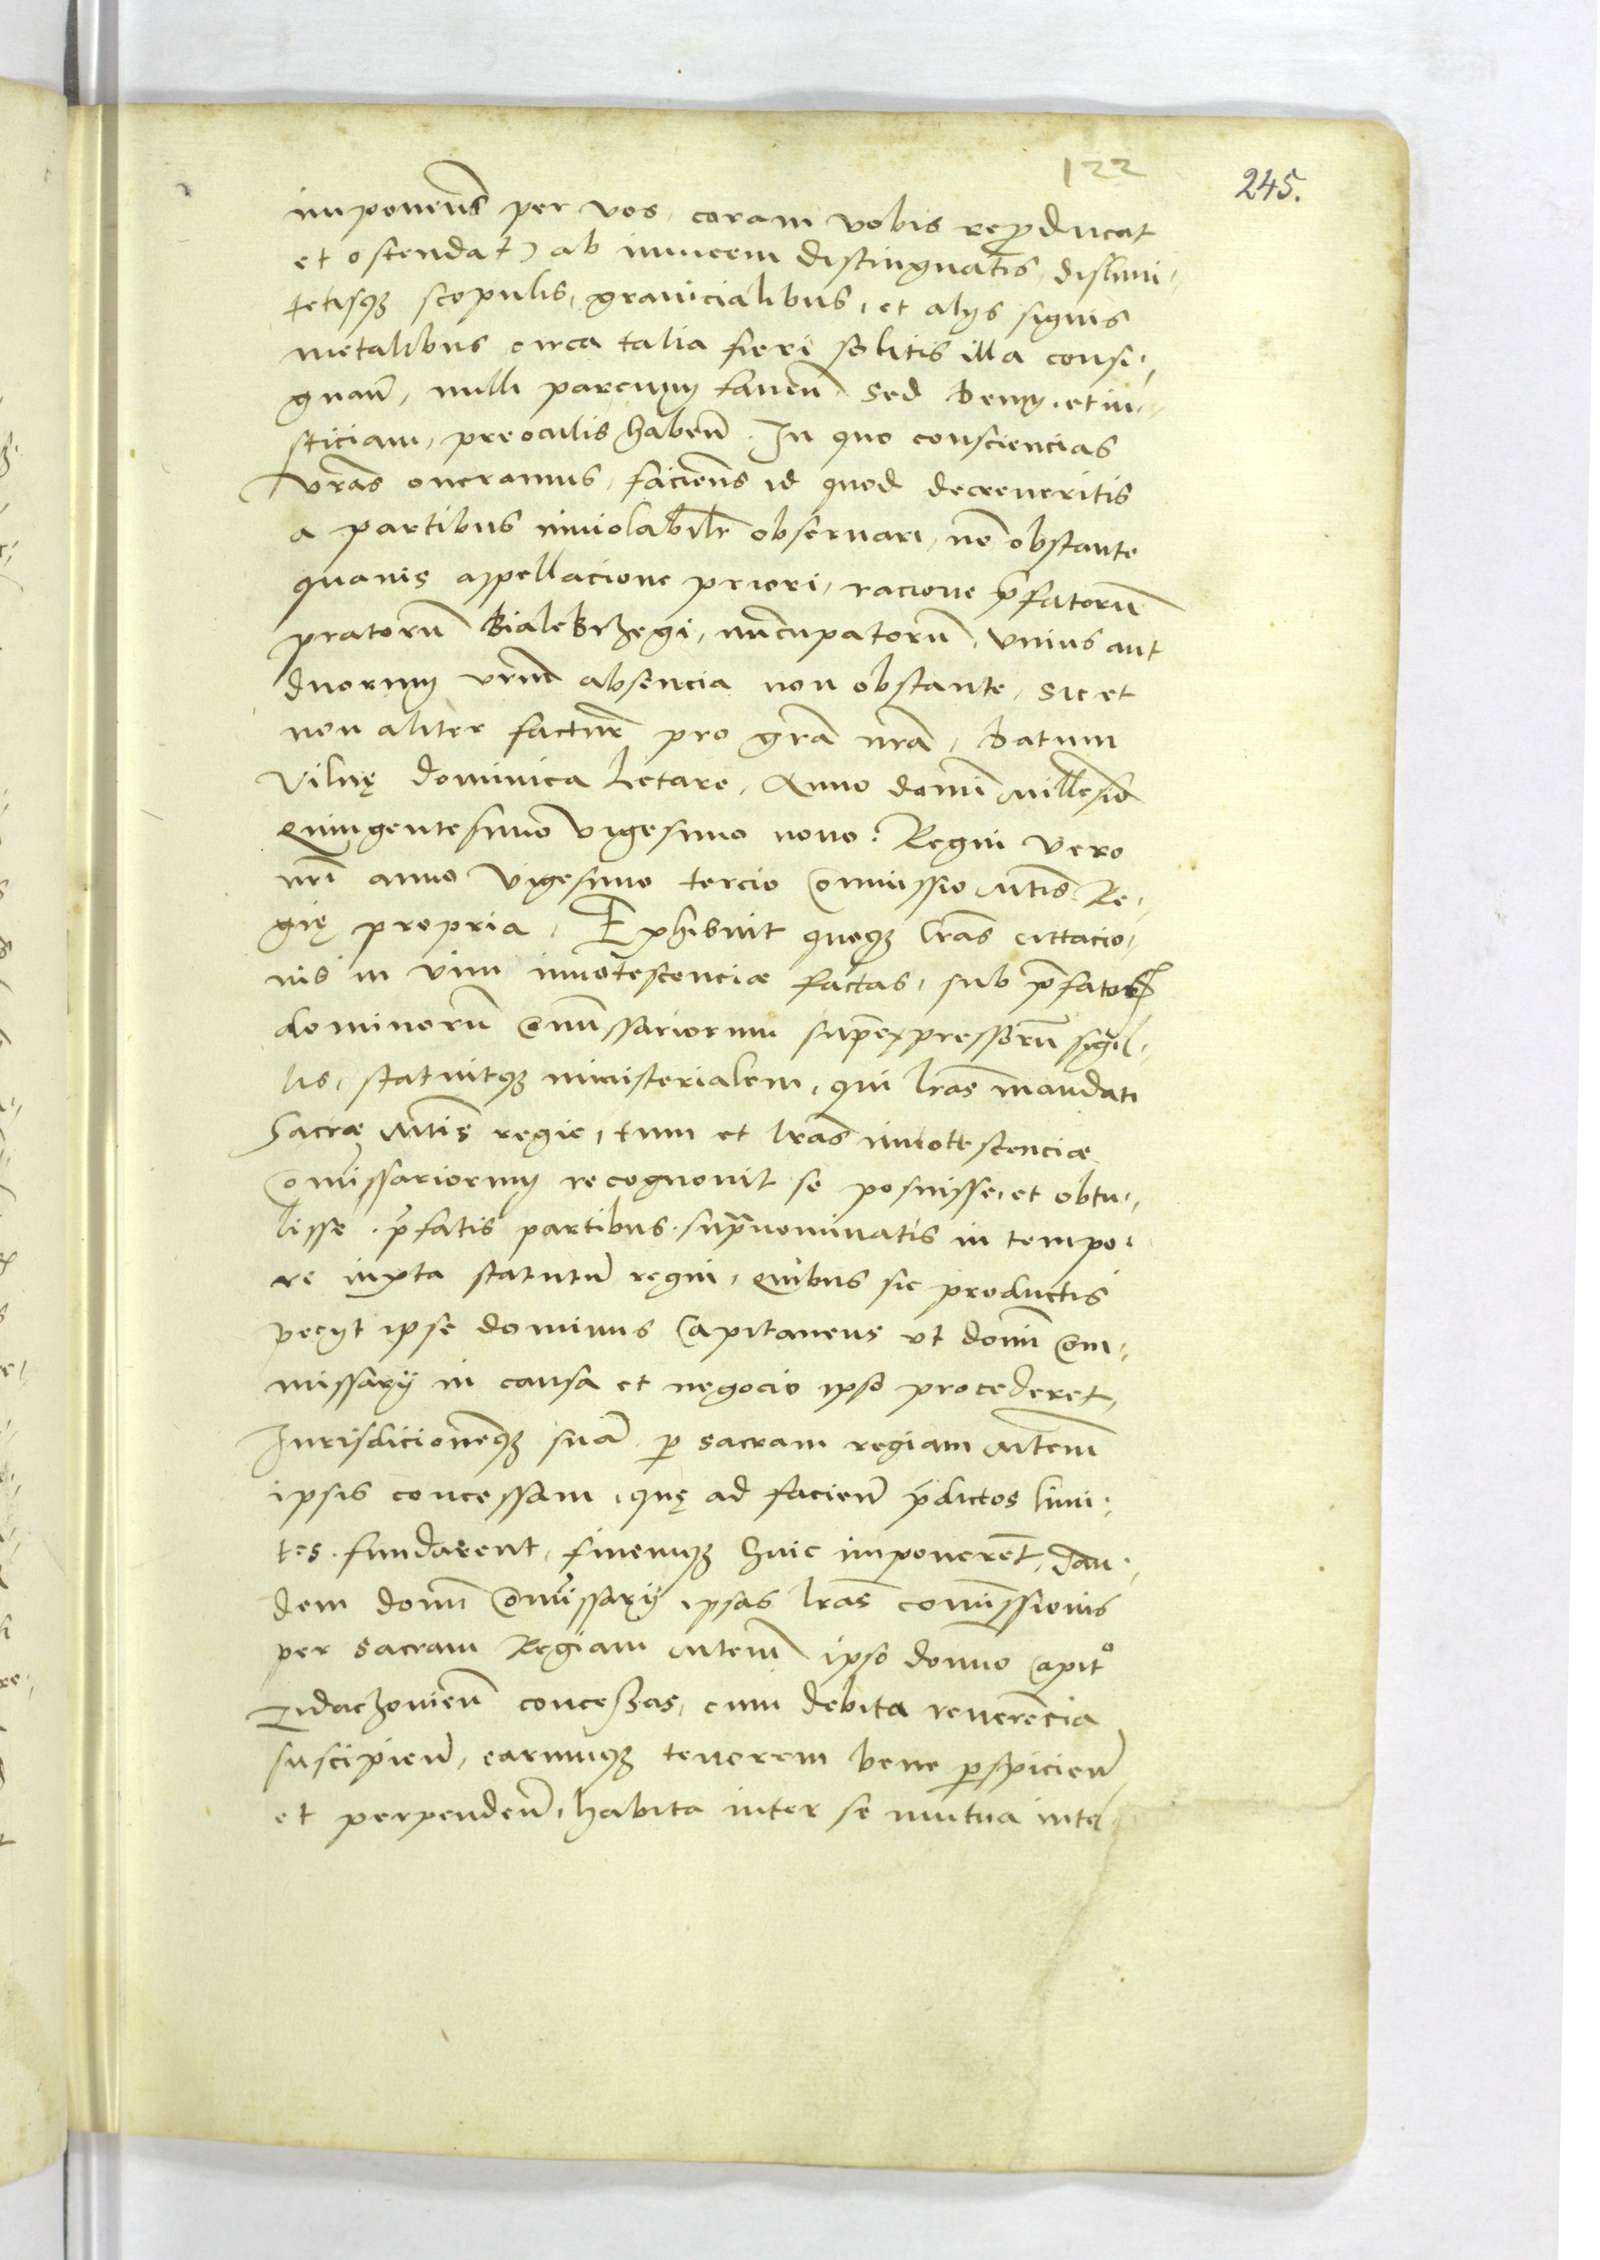 122
245.
imponen͞s per vos, coram vobis rep̱ducat
et ostendat) ab inuicem distinguatis, dislimi-
tetisqʒ scopulis, granicialibus, et alys signis
metalibus circa talia fieri solitis illa consi-
gnan͞, nulli parcituꝝ tamen͞ sed Deuꝫ et iu-
sticiam, preoculis haben͞. In quo consciencias
vr͞as oneramus, facien͞s id quod decreueritis
a partibus inuiolabilr͞ obseruari, no͞ obstante
quauis appellacione priori, racione p͞fatoru͞
pratoru͞ Bialebrzegi, nu͞cupatoru͞, vnius aut
duoruꝫ vr͞um absencia non obstante, sic et
non aliter factur͞ pro gr͞a nr͞a, Datum
Vilnę dominica Letare, Anno domi͞ millesi͞o
Quingentesimo vigesimo nono: Regni vero
nr͞i anno vigesimo tercio Commissio Mt͞is Re-
gię propria, Exhibuit quoqʒ lr͞as cittacio-
nis in vim innotescenciæ factas, sub p͞fatoꝝ
dominoru͞ Com͞issariorum sup͞expressoru͞ sigil-
lis, statuitqʒ ministerialem, qui lr͞as mandati
Sacræ Mt͞is regie, tum et lr͞as innottescenciæ
Com͞issarioruꝫ recognouit se posuisse, et obtu-
lisse p͞fatis partibus supranominatis in tempo-
re iuxta statutu͞ regni, Quibus sic productis
pecyt ipse dominus Capitaneus vt domi͞ Com-
missarÿ in causa et negocio ipso procederet,
Jurisdicione͞qʒ sua͞ p̱ sacram regiam Mtem͞
ipsis concessam, quę ad facien͞ p͞dictos limi-
tes fundarent, finemqʒ huic imponere͞t, dan-
dem domi͞ Com͞issarÿ ipsas lr͞as com͞issionis
per sacram Regiam Mtem͞ ipso domino Capit°
Zidaczouien͞ concessas, cum debita reuere͞cia
suscipien͞, earumqʒ tenorem bene p̱spicien͞
et perpenden͞, habita inter se mutua intel-